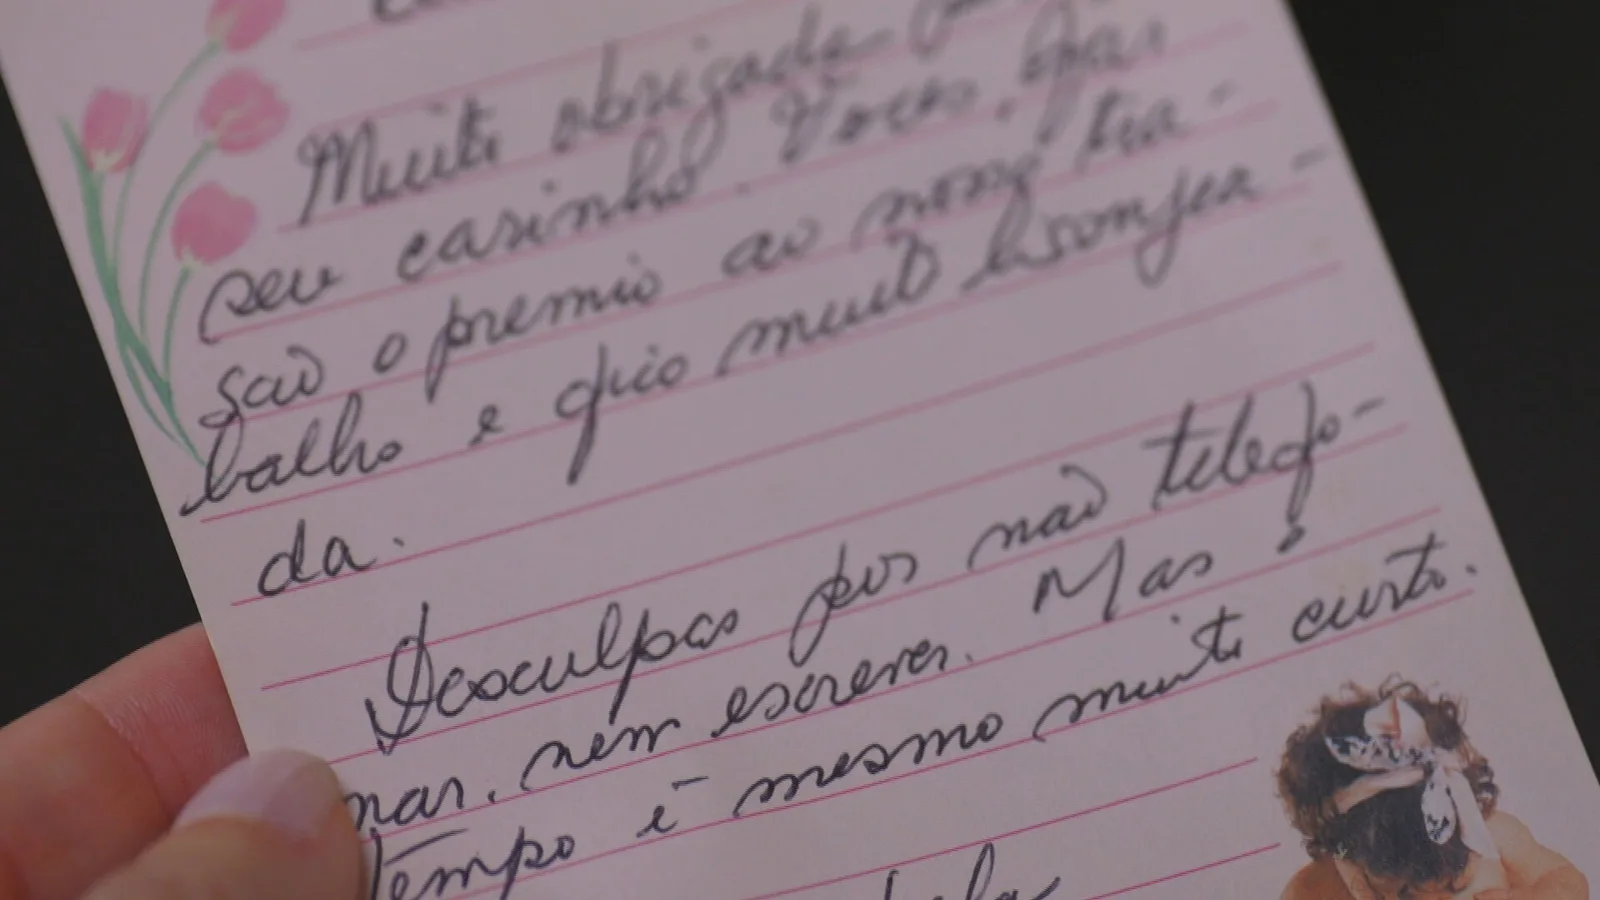 Muito obrigada
seu carinho. Voces, fãs
são o premio ao nosso tra-
balho e qio muito lisonjea-
da.
Desculpas por não telefo-
nar, nem escrever. Mas o
tempo é mesmo muito curto.